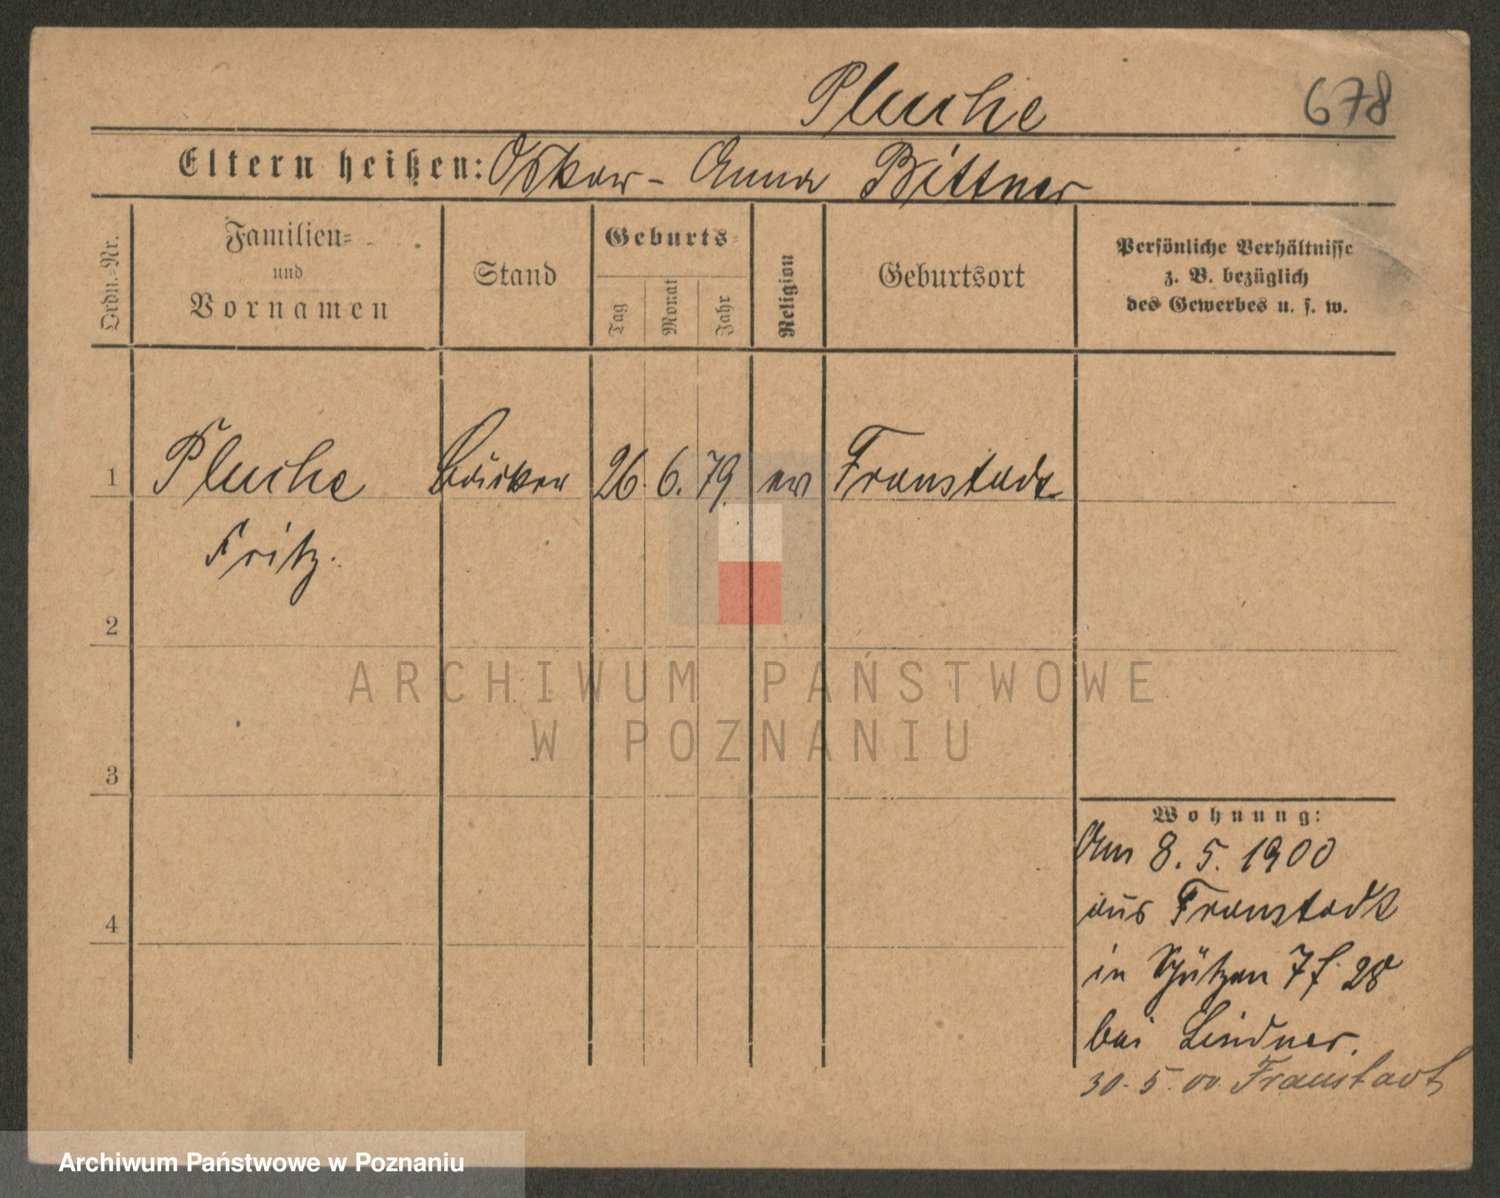 Pluche
678
Eltern heißen: Oskar - Anna Bittner
Ordn.-Nr.
Familien-
und
Vornamen
Stand
Geburts-
Tag
Monat
Jahr
Religion
Geburtsort
Persönliche Verhältnisse
z. B. bezüglich
des Gewerbes u. s. w.
1 Pluche Bäcker 26. 6. 79. ev Fraustadt
Fritz.
2
3
4
Wohnung:
Am 8. 5. 1900
aus Fraustadt
in Schützen 28
bei Lindner.
30. 5. 00 Fraustadt
ARCHIWUM PAŃSTWOWE
W POZNANIU
Archiwum Państwowe w Poznaniu